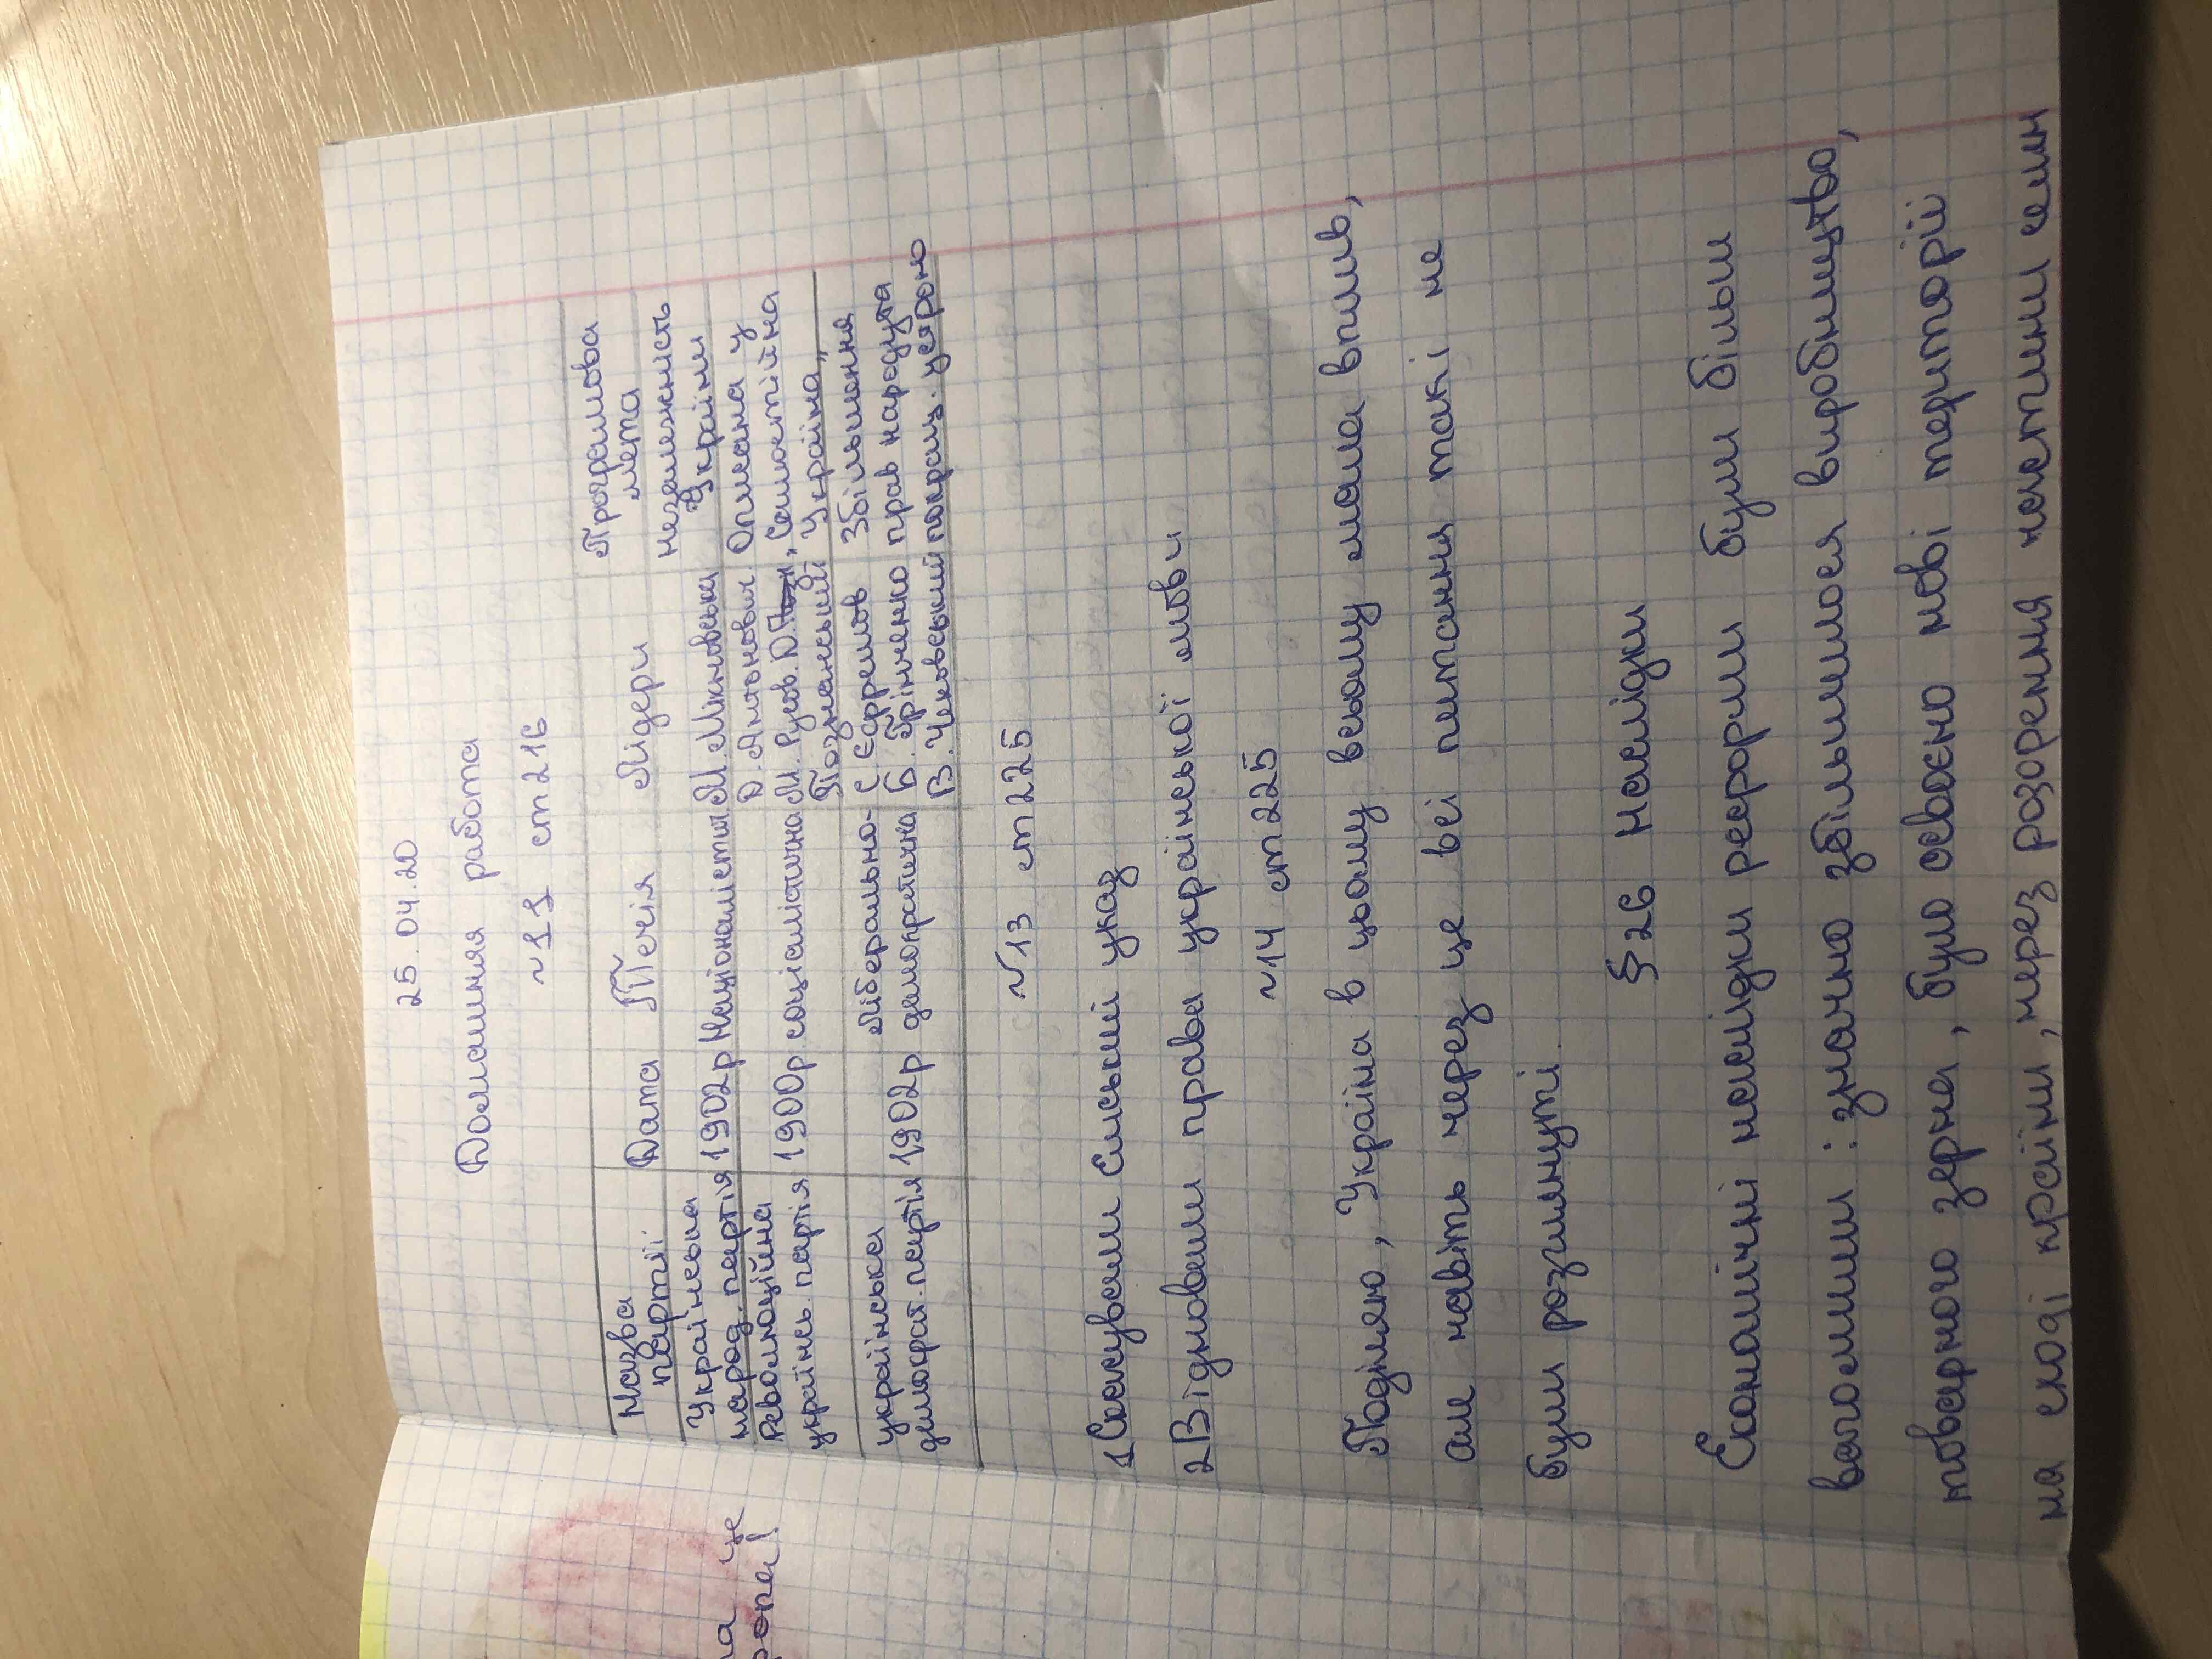 25.04.20
Домашняя работа
~11 ст216
Назва партії Дата Течія Лідери Програмова мета
Українська народ. партія 1902р Націоналістич М. Міхновська незалежність України
Революційна українсь. партія 1900р соціалістична Д. Антонович. М. Русов. Д. Познанський, Описана у „Самостійна Україна„
українська демократ. партія 1902р ліберально-демократична С Єфремов Б. Грінченко В. Чеховський Збільшення прав народу та покращ. устрою
№13 ст225
1 Скасували Емський указ
2 Відновили права української мови
~14 ст225
Поділяю, Україна в цьому всьому мала вплив,
але навіть через це всі питання такі не
були розглянуті.
§26 Наслідки
Економічні наслідки реформи були більш
вагомими: значно збільшилося виробництво,
товарного зерна, було освоєно нові території
на сході країни, через розорення частини селян
на це
ропа!